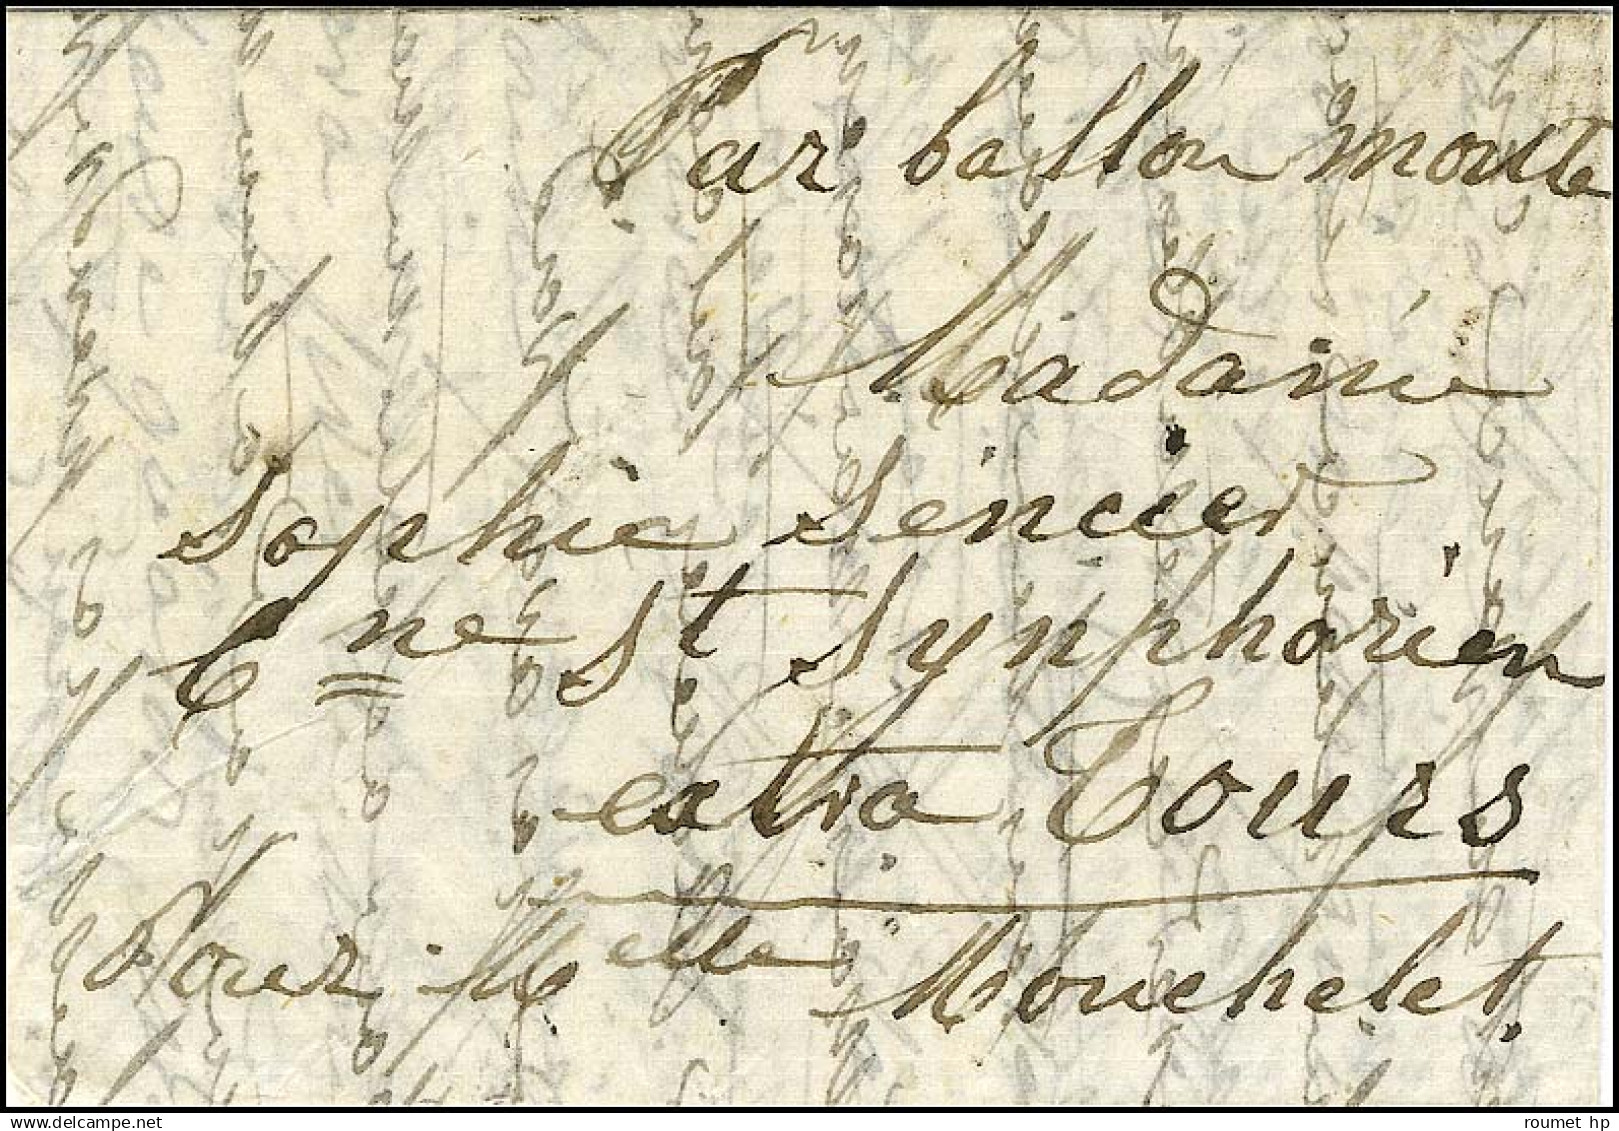 Par ballon monté
Madame
Sophie Sencier
Cne St Synphorien
extra Tours
Pour Melle Mouchelet.
roumet hp